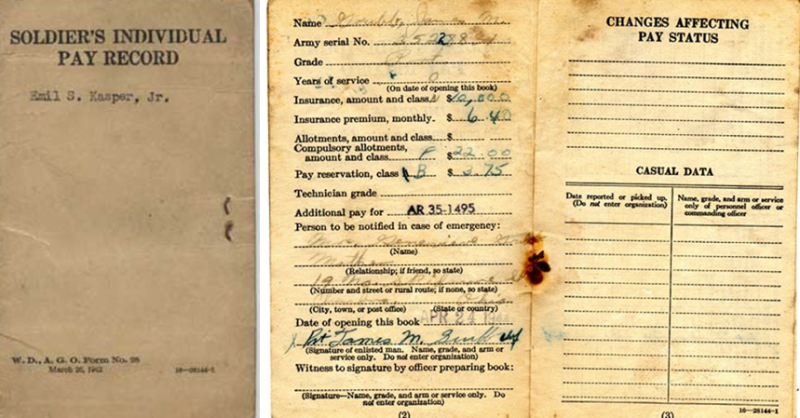 SOLDIER'S INDIVIDUAL
PAY RECORD
Emil S. Kasper, Jr.
W. D., A. G. O. Form No. 28
March 26, 1942
16—28144-1
Name
Army serial No.
Grade
Years of service 0
(On date of opening this book)
Insurance, amount and class $ 10,000
Insurance premium, monthly. $ 6.40
Allotments, amount and class $
Compulsory allotments,
amount and class F $ 22.00
Pay reservation, class B $ 3.75
Technician grade
Additional pay for AR 35-1495
Person to be notified in case of emergency:
(Name)
Mother
(Relationship; if friend, so state)
(Number and street or rural route; if none, so state)
Ohio
(City, town, or post office) (State or country)
Date of opening this book APR 24
Pvt James M.
(Signature of enlisted man. Name, grade, and arm or
service only. Do no enter organization)
Witness to signature by officer preparing book:
(Signature—Name, grade, and arm or service only. Do
not enter organization)
(2)
CHANGES AFFECTING
PAY STATUS
CASUAL DATA
Date reported or picked up.
(Do not enter organization)
Name, grade, and arm or service
only of personnel officer or
commanding officer
(3)
16—28144-1